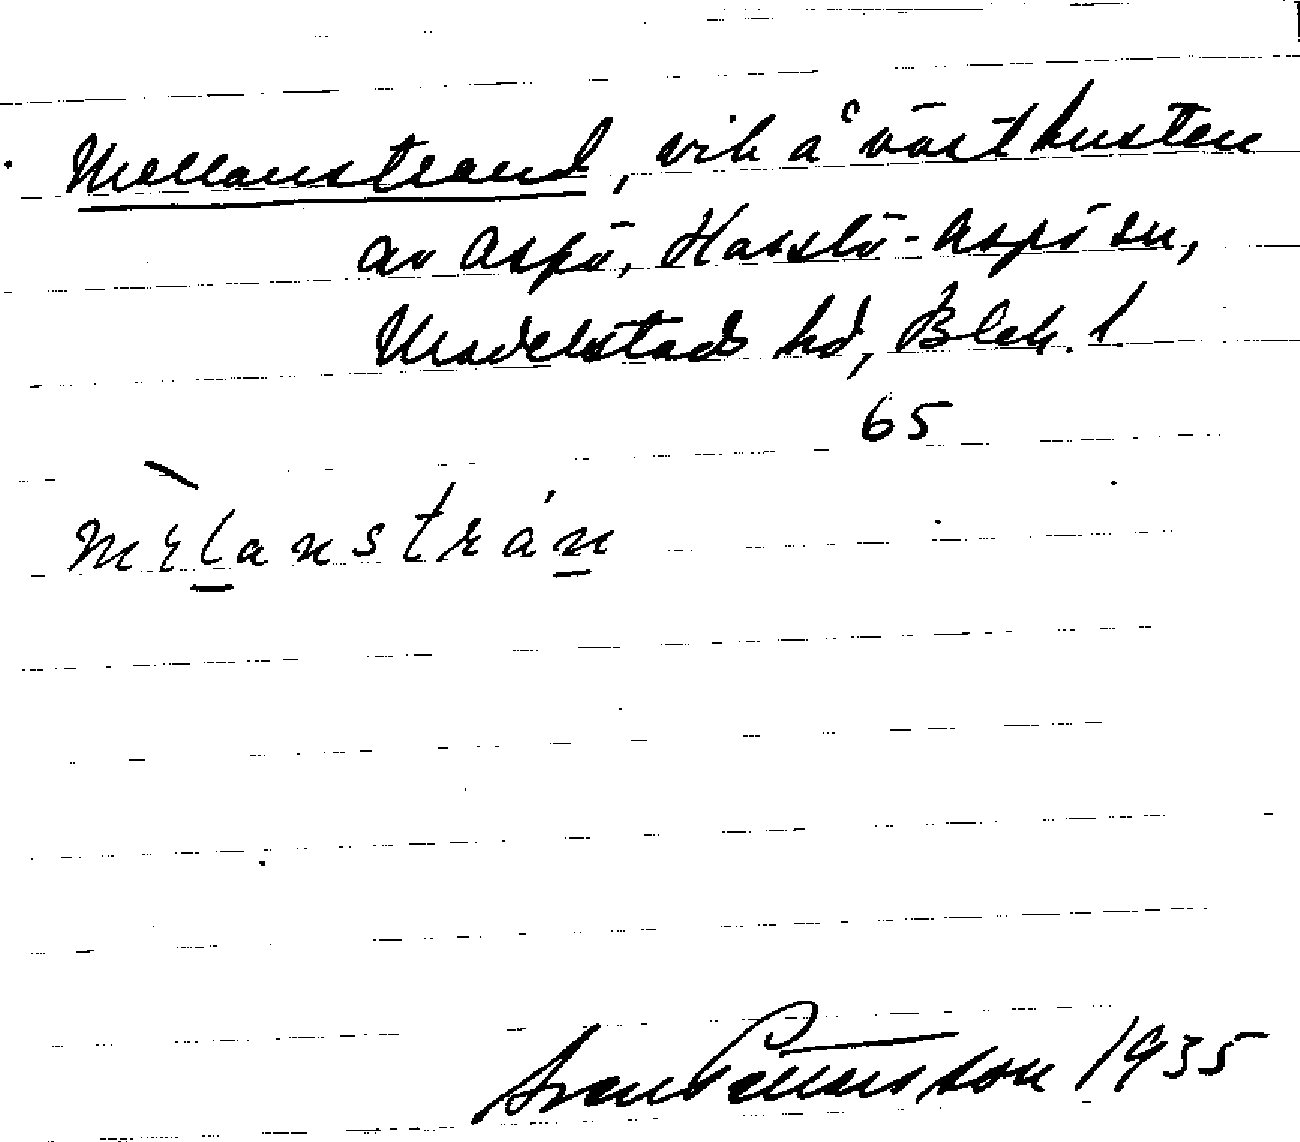 Mellanstrand, vik å västkusten
av Aspö, Hasslö-Aspö sn,
Medelstads hd, Blek. l
65
mɛ̀l̲anstrán̲
Sven Pettersson 1935